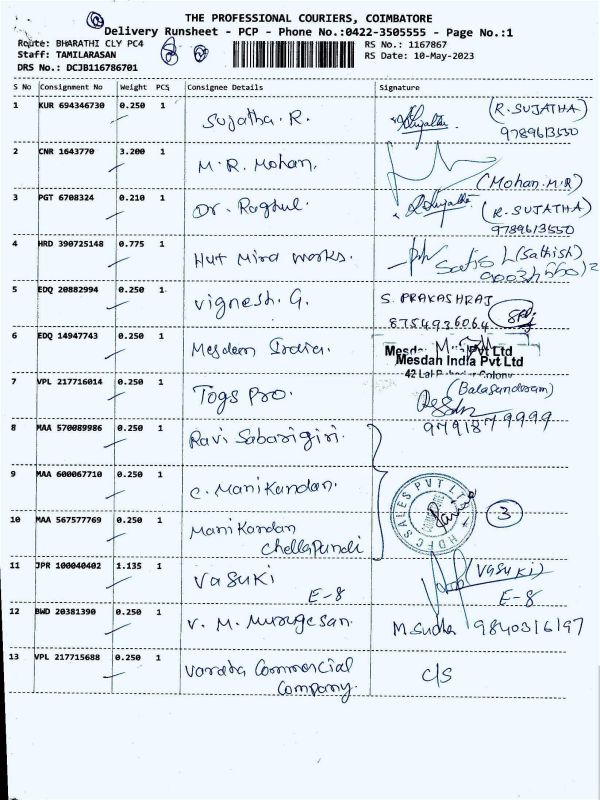 THE PROFESSIONAL COURIERS, COIMBATORE
Delivery Runsheet - PCP - Phone No.:0422-3505555 - Page No.:1
Route: BHARATHI CLY PC4
RS No.: 1167867
Staff: TAMILARASAN
RS Date: 10-May-2023
DRS No.: DCJB116786701
S No Consignment No Weight PCS Consignee Details Signature
1 KUR 694346730 0.250 1 Sujatha. R. (R. SUJATHA)
9789613550
2 CNR 1643770 3.200 1 M. R. Mohan.
(Mohan. M. R)
3 PGT 6708324 0.210 1 Dr. Ragtul. (R. SUJATHA)
9789613550
4 HRD 390725148 0.775 1 Hut Mira works. (Sathish)
5 EDQ 20882994 0.250 1 Vignesh. G. S. PRAKASHRAJ
8754936064
6 EDQ 14947743 0.250 1 Mesdem India.
Mesdah India Pvt Ltd
42 Lal Bahadur Colony
7 VPL 217716014 0.250 1 Togs Pro. (Balasundaram)
9791879999
8 MAA 570089986 0.250 1 Ravi Sabarigiri.
9 MAA 600067710 0.250 1 C. Manikandan.
HDFC SALES PVT LTD
3
10 MAA 567577769 0.250 1 Manikandan
Chellapandi
11 JPR 100040402 1.135 1 Vasuki (VASUKI)
E-8 E-8
12 BWD 20381390 0.250 1 V. M. Murugesan. M. Sudha 9840316197
13 VPL 217715688 0.250 1 Varatha Commercial C/S
Company.